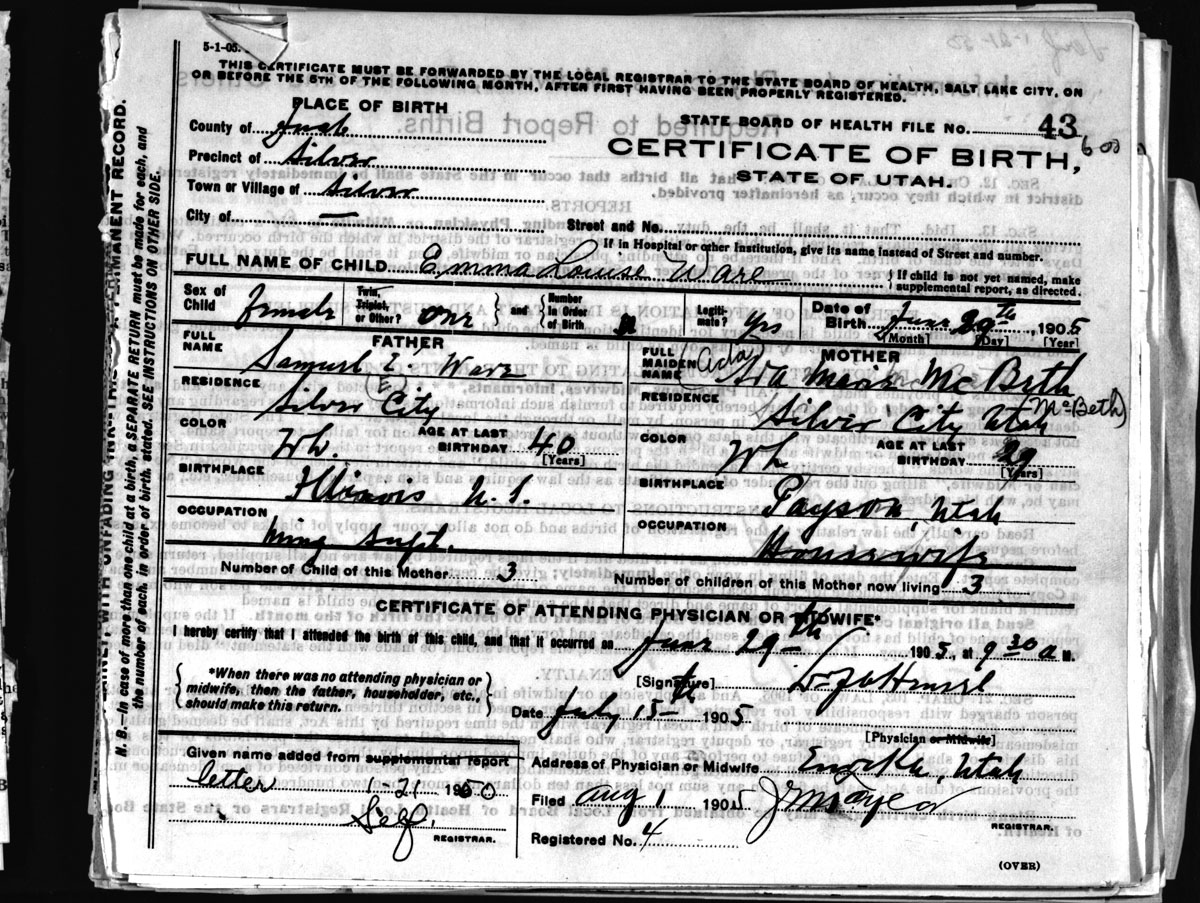 5-1-05.
THIS CERTIFICATE MUST BE FORWARDED BY THE LOCAL REGISTRAR TO THE STATE BOARD OF HEALTH, SALT LAKE CITY, ON
OR BEFORE THE 5TH OF THE FOLLOWING MONTH, AFTER FIRST HAVING BEEN PROPERLY REGISTERED.
PLACE OF BIRTH
County of Juab
Precinct of Silver
Town or Village of Silver
City of —
STATE BOARD OF HEALTH FILE No. 43
600
CERTIFICATE OF BIRTH,
STATE OF UTAH.
Street and No.
If in Hospital or other Institution, give its name instead of Street and number.
FULL NAME OF CHILD Emma Louise Ware { If child is not yet named, make supplemental report, as directed.
Sex of Child Female Twin, Triplet, or Other? One } and { Number In Order of Birth Legiti-mate? Yes Date of Birth June 29th, 1905
[Month] [Day] [Year]
FATHER
FULL NAME Samuel E. Ware
RESIDENCE Silver City
COLOR Wh. AGE AT LAST BIRTHDAY 40
[Years]
BIRTHPLACE Illinois U.S.
OCCUPATION Ming Supt.
MOTHER
FULL MAIDEN NAME (Ada) Ada Marie McBeth
(McBeth)
RESIDENCE Silver City Utah
COLOR Wh AGE AT LAST BIRTHDAY 29
[Years]
BIRTHPLACE Payson, Utah
OCCUPATION Housewife
Number of Child of this Mother 3 Number of children of this Mother now living 3
CERTIFICATE OF ATTENDING PHYSICIAN OR MIDWIFE*
I hereby certify that I attended the birth of this child, and that it occurred on June 29th 1905, at 9 30 a M.
{ *When there was no attending physician or midwife, then the father, householder, etc., should make this return. }
[Signature]
Date July 15th 1905
[Physician or Midwife]
Given name added from supplemental report
letter 1-21 1950
Self.
REGISTRAR.
Address of Physician or Midwife Eureka, Utah
Filed Aug 1 1905
REGISTRAR.
Registered No. 4
(OVER)
N. B.—In case of more than one child at a birth, a SEPARATE RETURN must be made for each, and
the number of each, in order of birth, stated. SEE INSTRUCTIONS ON OTHER SIDE.